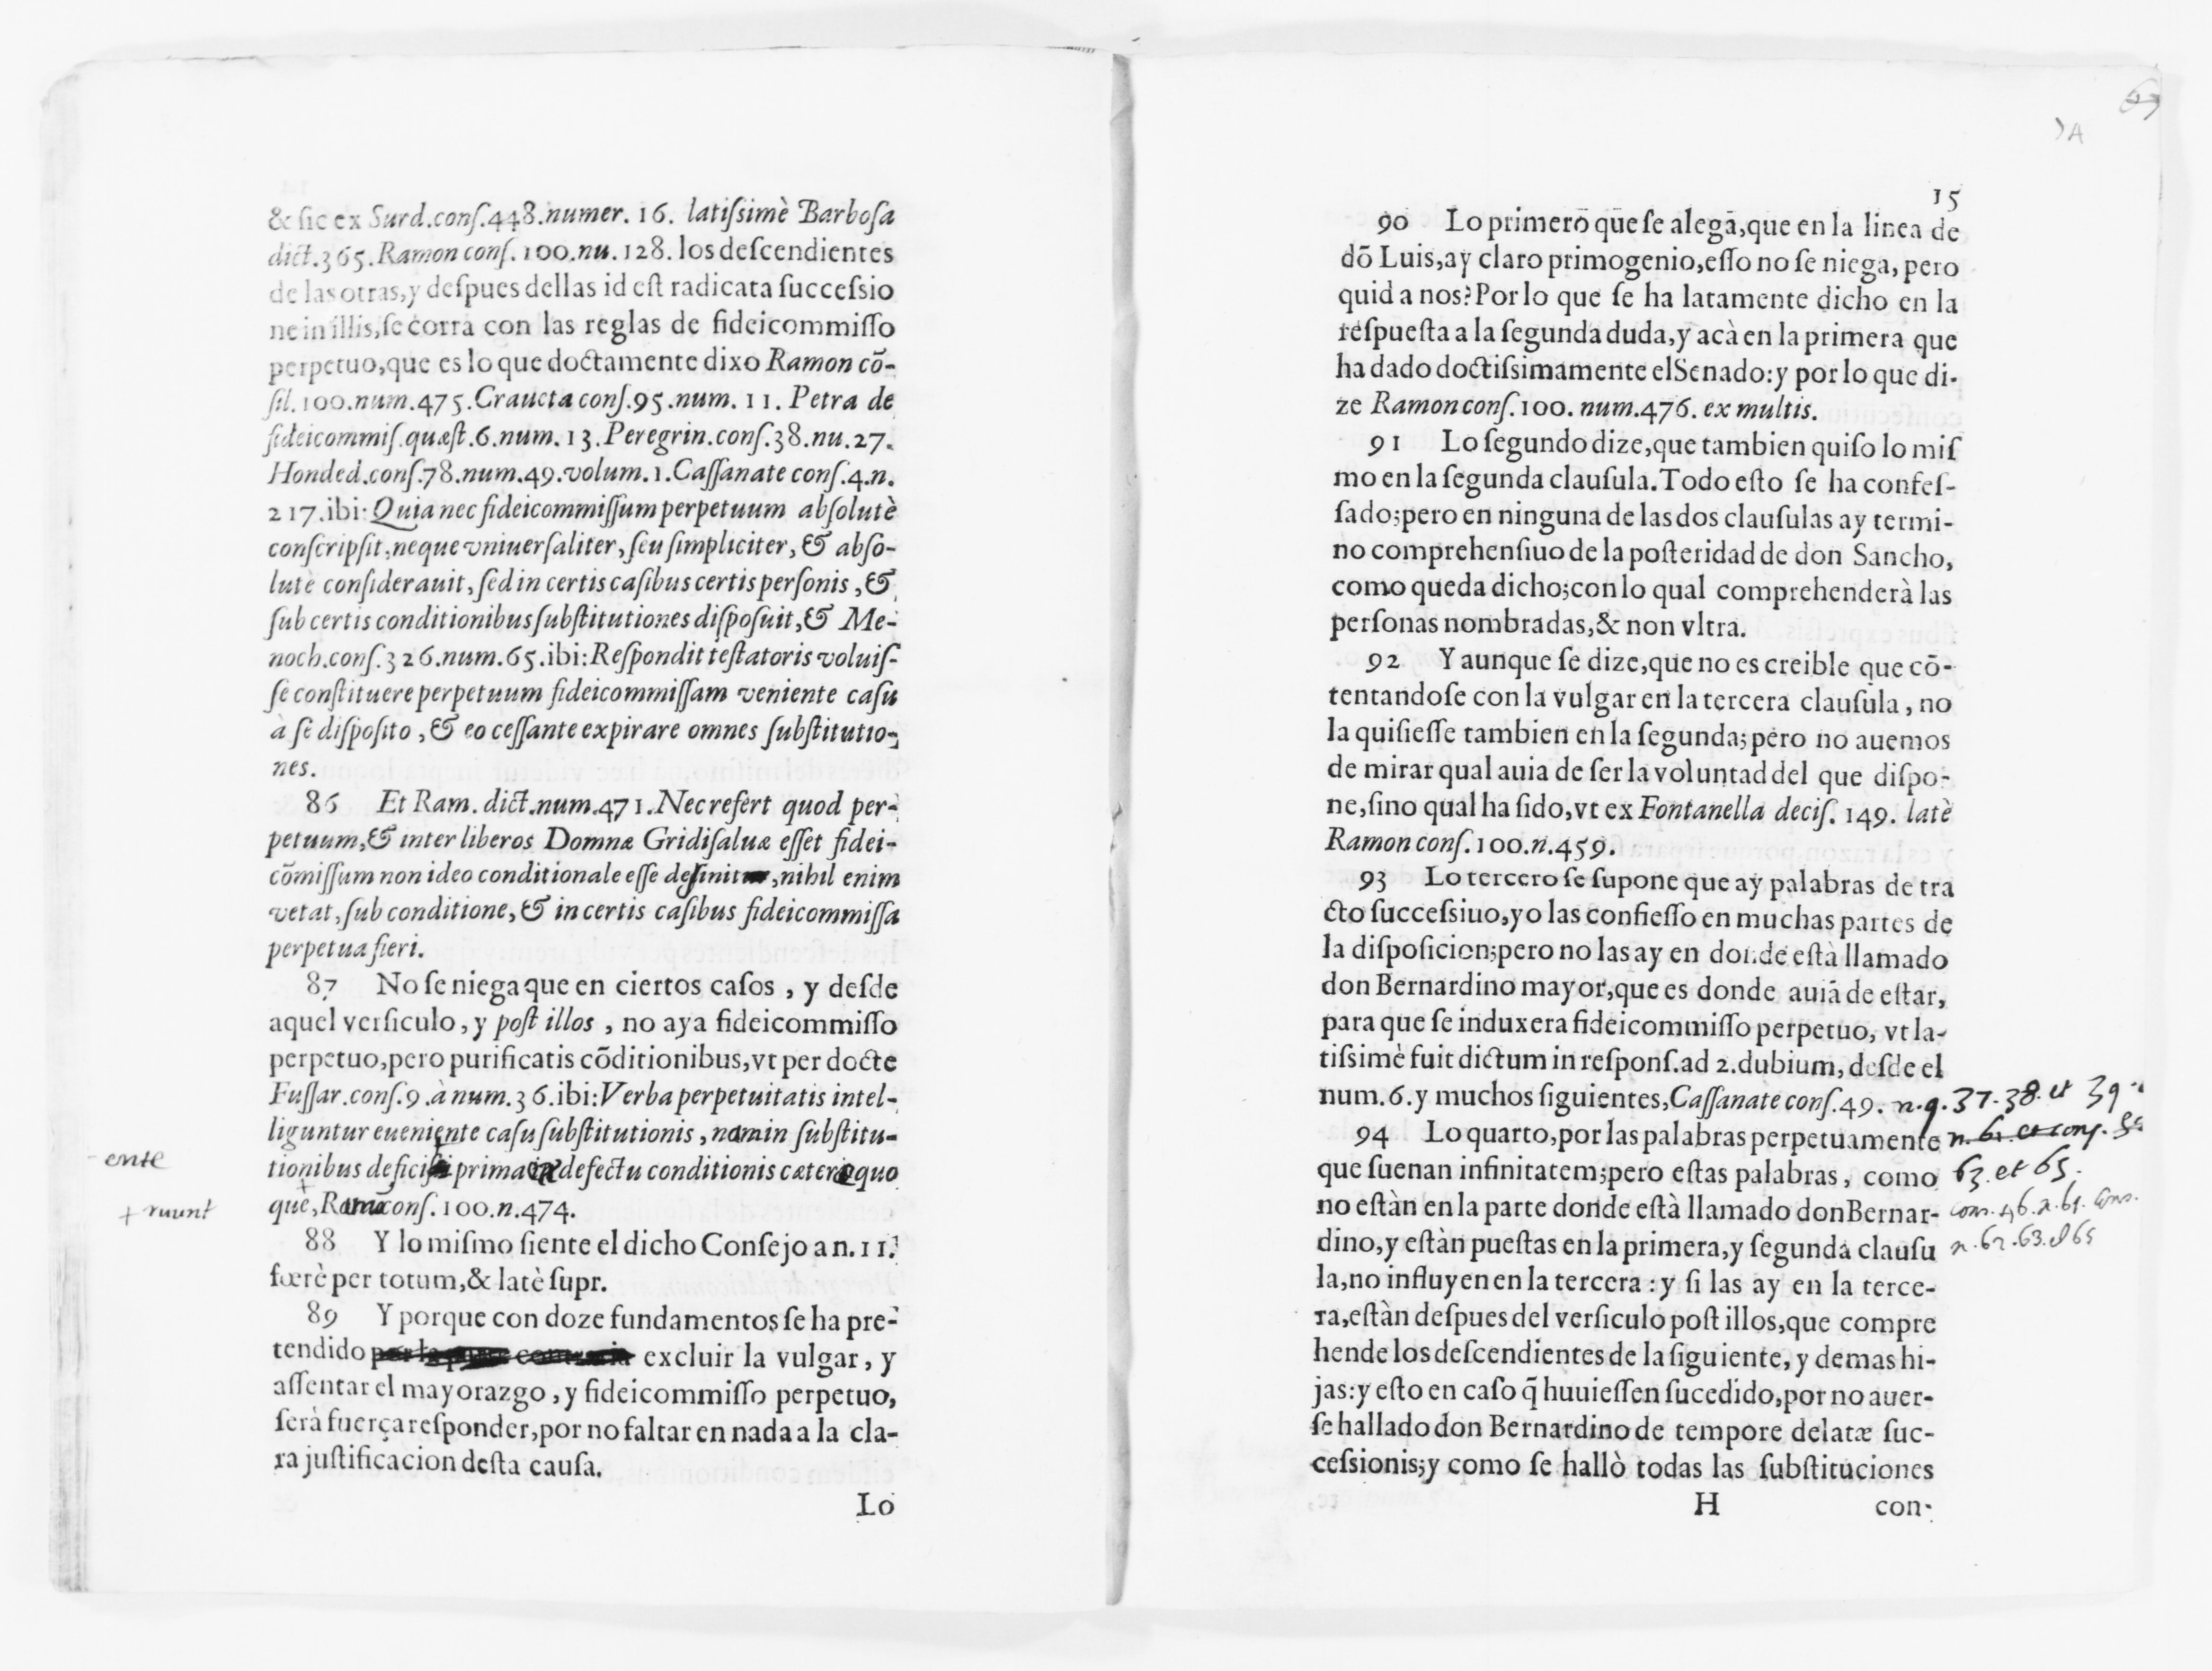 & ſic ex Surd.conſ.448.numer. 16. latiſsimè Barboſa
dict.365.Ramon conſ. 100.nu. 128. los deſcendientes
de las otras,y deſpues dellas id eſt radicata ſucceſsio
ne in illis,ſe corra con las reglas de fideicommiſſo
perpetuo,que es lo que doctamente dixo Ramon cō-
ſil. 100.num.475.Craueta conſ.95.num. 11. Petra de
fideicommiſ.quæſt.6.num. 13. Peregrin.conſ.38.nu.27.
Honded.conſ.78.num.49.volum.1.Caſſanate conſ.4.n.
217.ibi:Quia nec fideicommiſſum perpetuum abſolutè
conſcripſit,neque vniuerſaliter,ſeu ſimpliciter,& abſo-
lutè conſiderauit,ſed in certis caſibus certis perſonis,&
ſub certis conditionibus ſubſtitutiones diſpoſuit,& Me-
noch.conſ.326.num.65.ibi:Reſpondit teſtatoris voluiſ-
ſe conſtituere perpetuum fideicommiſſam veniente caſu
à ſe diſpoſito,& eo ceſſante expirare omnes ſubſtitutio-
nes.
86 Et Ram. dict.num.471.Nec refert quod per-
petuum,& inter liberos Domnæ Gridiſaluæ eſſet fidei-
cōmiſſum non ideo conditionale eſſe definit,nihil enim
vetat,ſub conditione,& in certis caſibus fideicommiſſa
perpetua fieri.
87 No ſe niega que en ciertos caſos, y deſde
aquel verſiculo, y poſt illos, no aya fideicommiſſo
perpetuo,pero purificatis cōditionibus,vt per docte
Fuſſar.conſ.9.à num.36.ibi:Verba perpetuitatis intel-
liguntur eueniente caſu ſubſtitutionis, nam in ſubſtitu-
- ente
tionibus defici prima defectu conditionis cæter quo
+ ruunt
què, Ramō conſ. 100.n.474.
88 Y lo miſmo ſiente el dicho Conſejo a n.11.
ferè per totum,& latè ſupr.
89 Y porque con doze fundamentos ſe ha pre-
tendido por la parte contraria excluir la vulgar, y
aſſentar el mayorazgo, y fideicommiſſo perpetuo,
ſerà fuerça reſponder,por no faltar en nada a la cla-
ra juſtificacion deſta cauſa.
Lo
15
90 Lo primero que ſe alegā,que en la linea de
dō Luis,ay claro primogenio,eſſo no ſe niega, pero
quid a nos?Por lo que ſe ha latamente dicho en la
reſpueſta a la ſegunda duda,y acà en la primera que
ha dado doctiſsimamente el Senado:y por lo que di-
ze Ramon conſ.100. num.476. ex multis.
91 Lo ſegundo dize,que tambien quiſo lo miſ
mo en la ſegunda clauſula.Todo eſto ſe ha confeſ-
ſado;pero en ninguna de las dos clauſulas ay termi-
no comprehenſiuo de la poſteridad de don Sancho,
como queda dicho;con lo qual comprehenderà las
perſonas nombradas,& non vltra.
92 Y aunque ſe dize,que no es creible que cō-
tentandoſe con la vulgar en la tercera clauſula, no
la quiſieſſe tambien en la ſegunda;pero no auemos
de mirar qual auia de ſer la voluntad del que diſpo-
ne,ſino qual ha ſido,vt ex Fontanella deciſ. 149. latè
Ramon conſ.100.n.459.
93 Lo tercero ſe ſupone que ay palabras de tra
cto ſucceſsiuo,yo las confieſſo en muchas partes de
la diſpoſicion;pero no las ay en donde eſtà llamado
don Bernardino mayor,que es donde auiā de eſtar,
para que ſe induxera fideicommiſſo perpetuo, vt la-
tiſsimè fuit dictum in reſponſ.ad 2.dubium, deſde el
num.6.y muchos ſiguientes,Caſſanate conſ.49. n.9.37.38. et 39.
94 Lo quarto,por las palabras perpetuamente
que ſuenan infinitatem;pero eſtas palabras, como 63. et 65.
no eſtàn en la parte donde eſtà llamado don Bernar-
dino,y eſtàn pueſtas en la primera,y ſegunda clauſu n.62.63.et 65
la,no influyen en la tercera : y ſi las ay en la terce-
ra,eſtàn deſpues del verſiculo poſt illos,que compre
hende los deſcendientes de la ſiguiente, y demas hi-
jas:y eſto en caſo q̄ huuieſſen ſucedido,por no auer-
ſe hallado don Bernardino de tempore delatæ ſuc-
ceſsionis;y como ſe hallò todas las ſubſtituciones
H con-